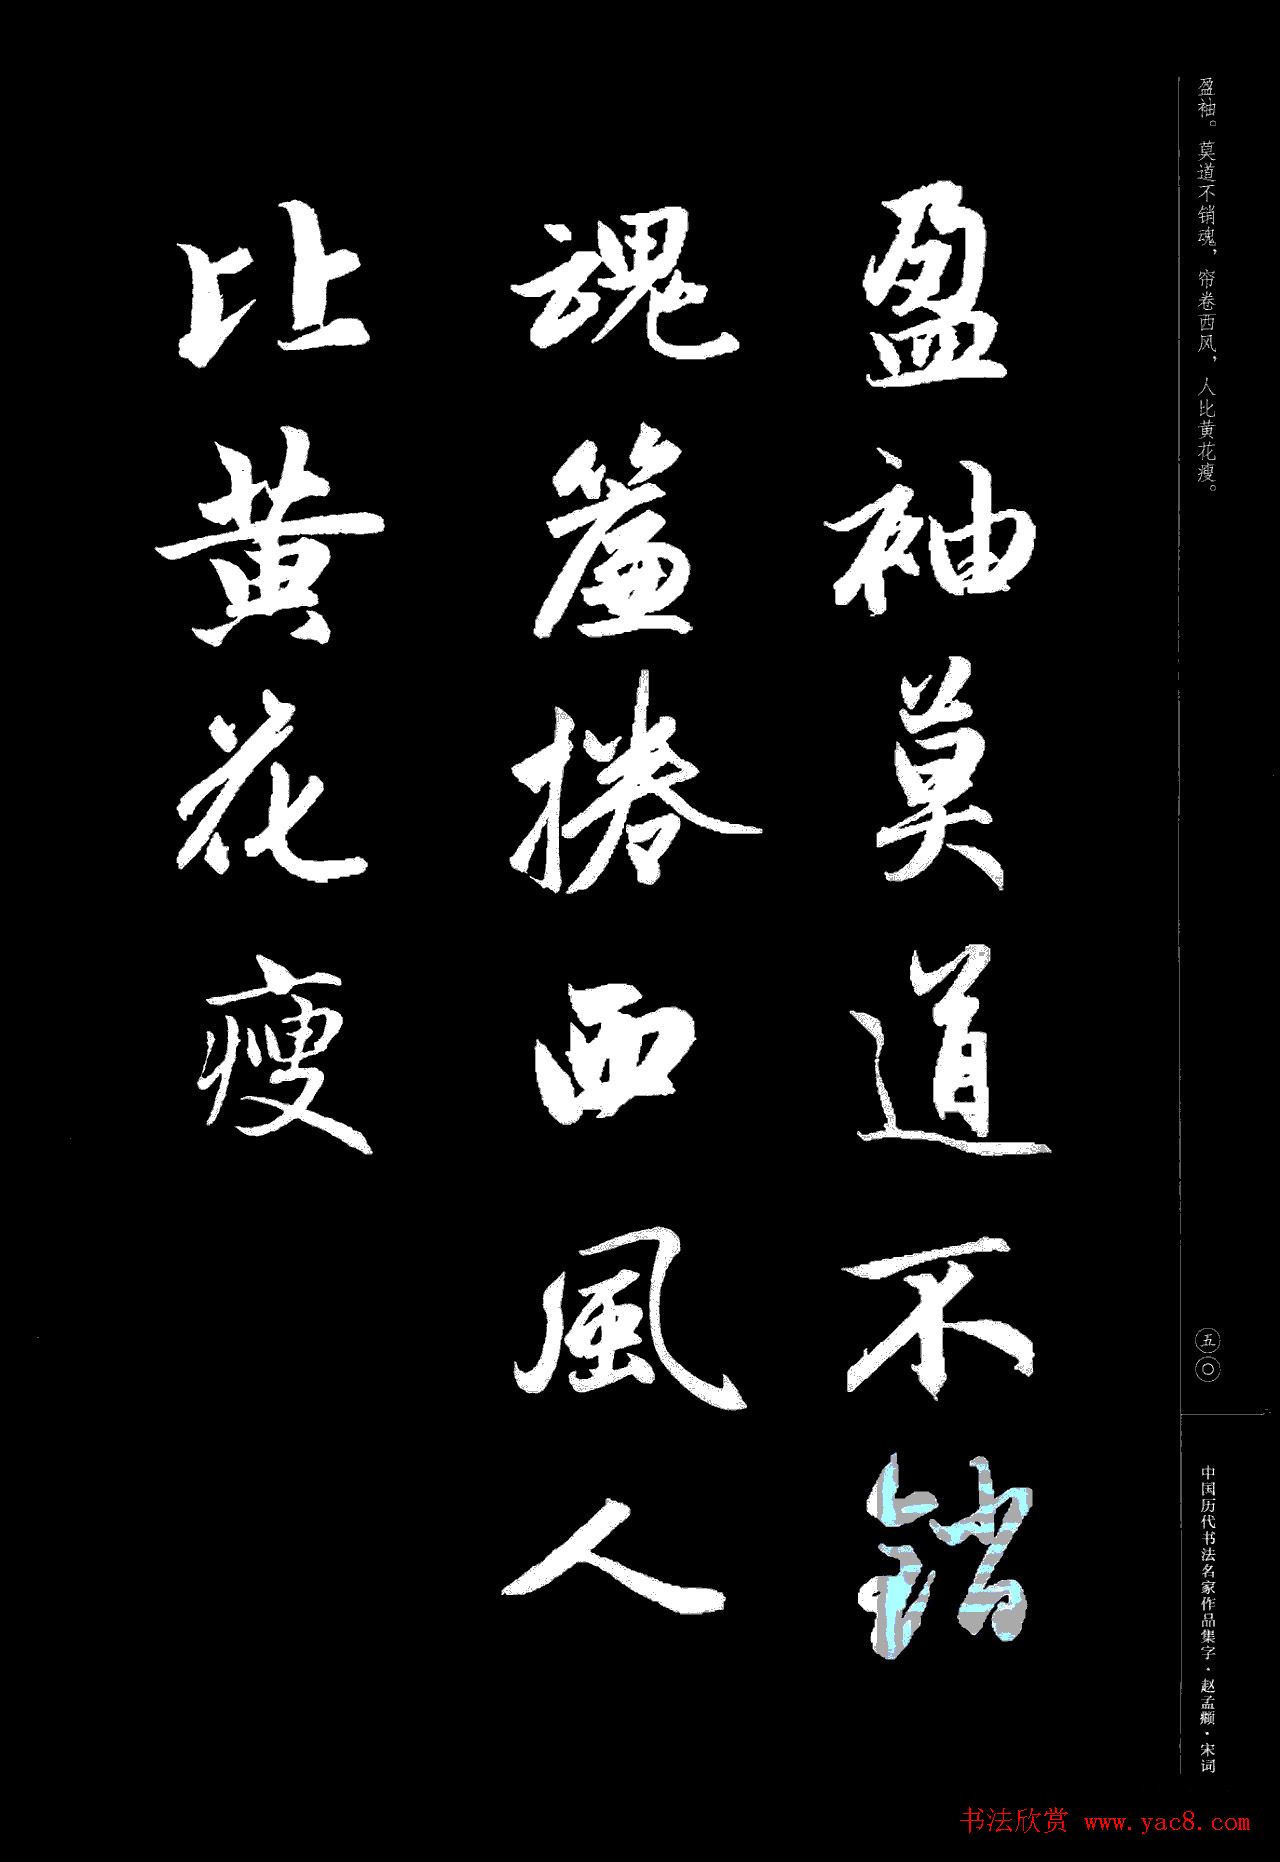 盈袖。莫道不销魂，帘卷西风，人比黄花瘦。
盈袖莫道不銷
魂簾捲西風人
比黄花瘦
五〇
中国历代书法名家作品集字·赵孟頫·宋词
书法欣赏 www.yac8.com